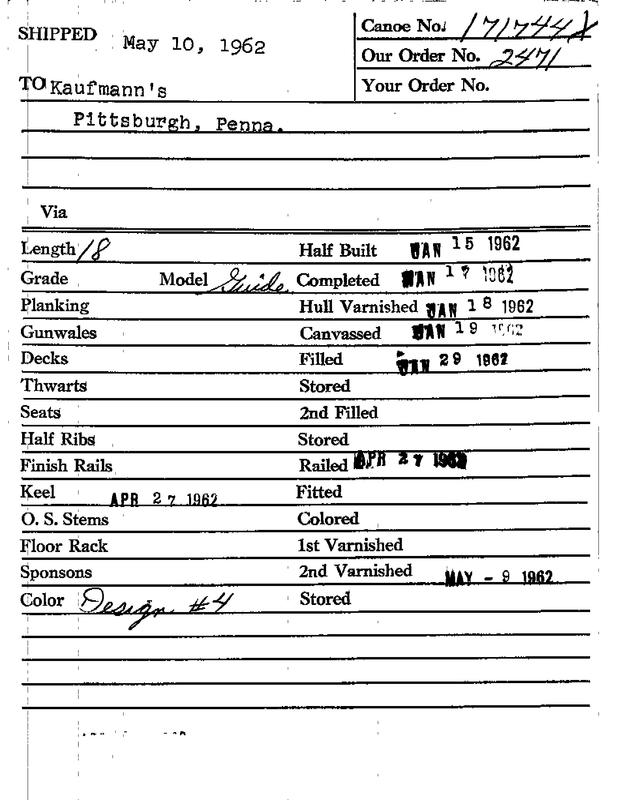 SHIPPED May 10, 1962
Canoe No. 171744
Our Order No. 2471
TO Kaufmann's
Your Order No.
Pittsburgh, Penna.
Via
Length 18 Half Built JAN 15 1962
Grade Model Guide Completed JAN 17 1962
Planking Hull Varnished JAN 18 1962
Gunwales Canvassed JAN 19 1962
Decks Filled JAN 29 1962
Thwarts Stored
Seats 2nd Filled
Half Ribs Stored
Finish Rails Railed APR 27 1962
Keel APR 27 1962 Fitted
O. S. Stems Colored
Floor Rack 1st Varnished
Sponsons 2nd Varnished MAY - 9 1962
Color Design #4 Stored